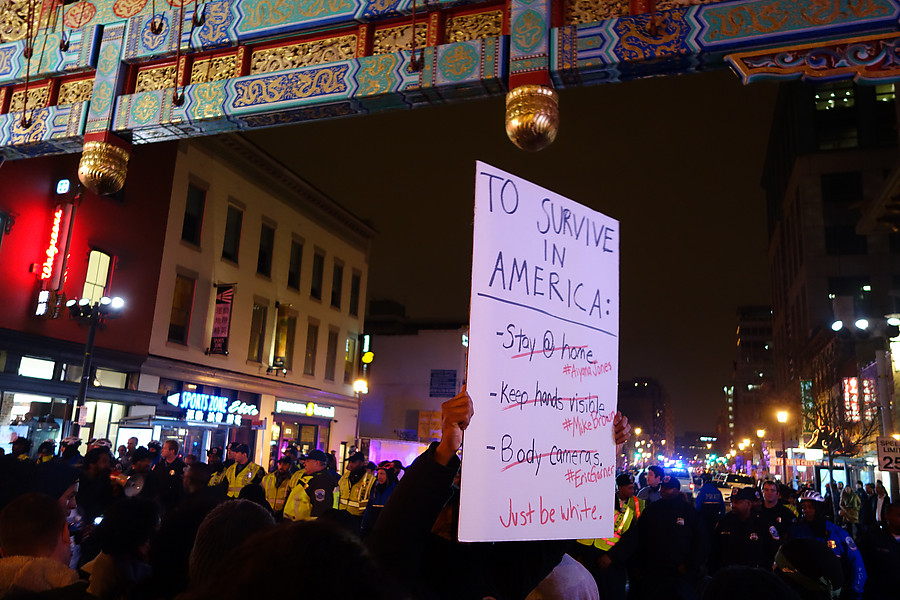 TO SURVIVE
IN
AMERICA:
-Stay @ home
#AiyanaJones
-Keep hands visible
#MikeBrown
-Body cameras.
#EricGarner
Just be white.
Walgreens
SPORTS ZONE Elite
SPEED
25